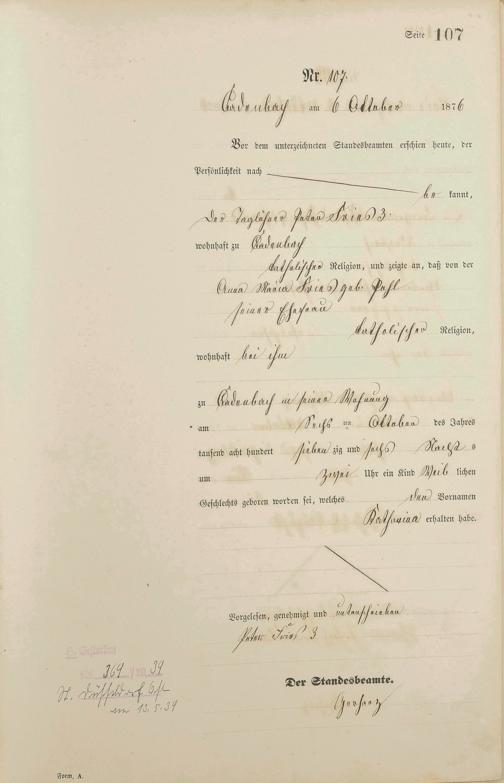 Seite 107
Nr. 107.
Kadenbach am 6 October 1876
Vor dem unterzeichneten Standesbeamten erschien heute, der
Persönlichkeit nach
be kannt,
der Taglöhner Peter Fries 3.
wohnhaft zu Kadenbach
katholischer Religion, und zeigte an, daß von der
Anna Maria Fries geb. Pehl
seiner Ehefrau
katholischer Religion,
wohnhaft bei ihm
zu Kadenbach in seiner Wohnung
am Sechs ten October des Jahres
tausend acht hundert sieben zig und sechs Nachts
um zwei Uhr ein Kind Weib lichen
Geschlechts geboren worden sei, welches den Vornamen
Katharina erhalten habe.
Vorgelesen, genehmigt und unterschrieben
Peter Fries 3
Der Standesbeamte.
364 39
St. Düsseldorf Ost
am 12.5.39
Form. A.